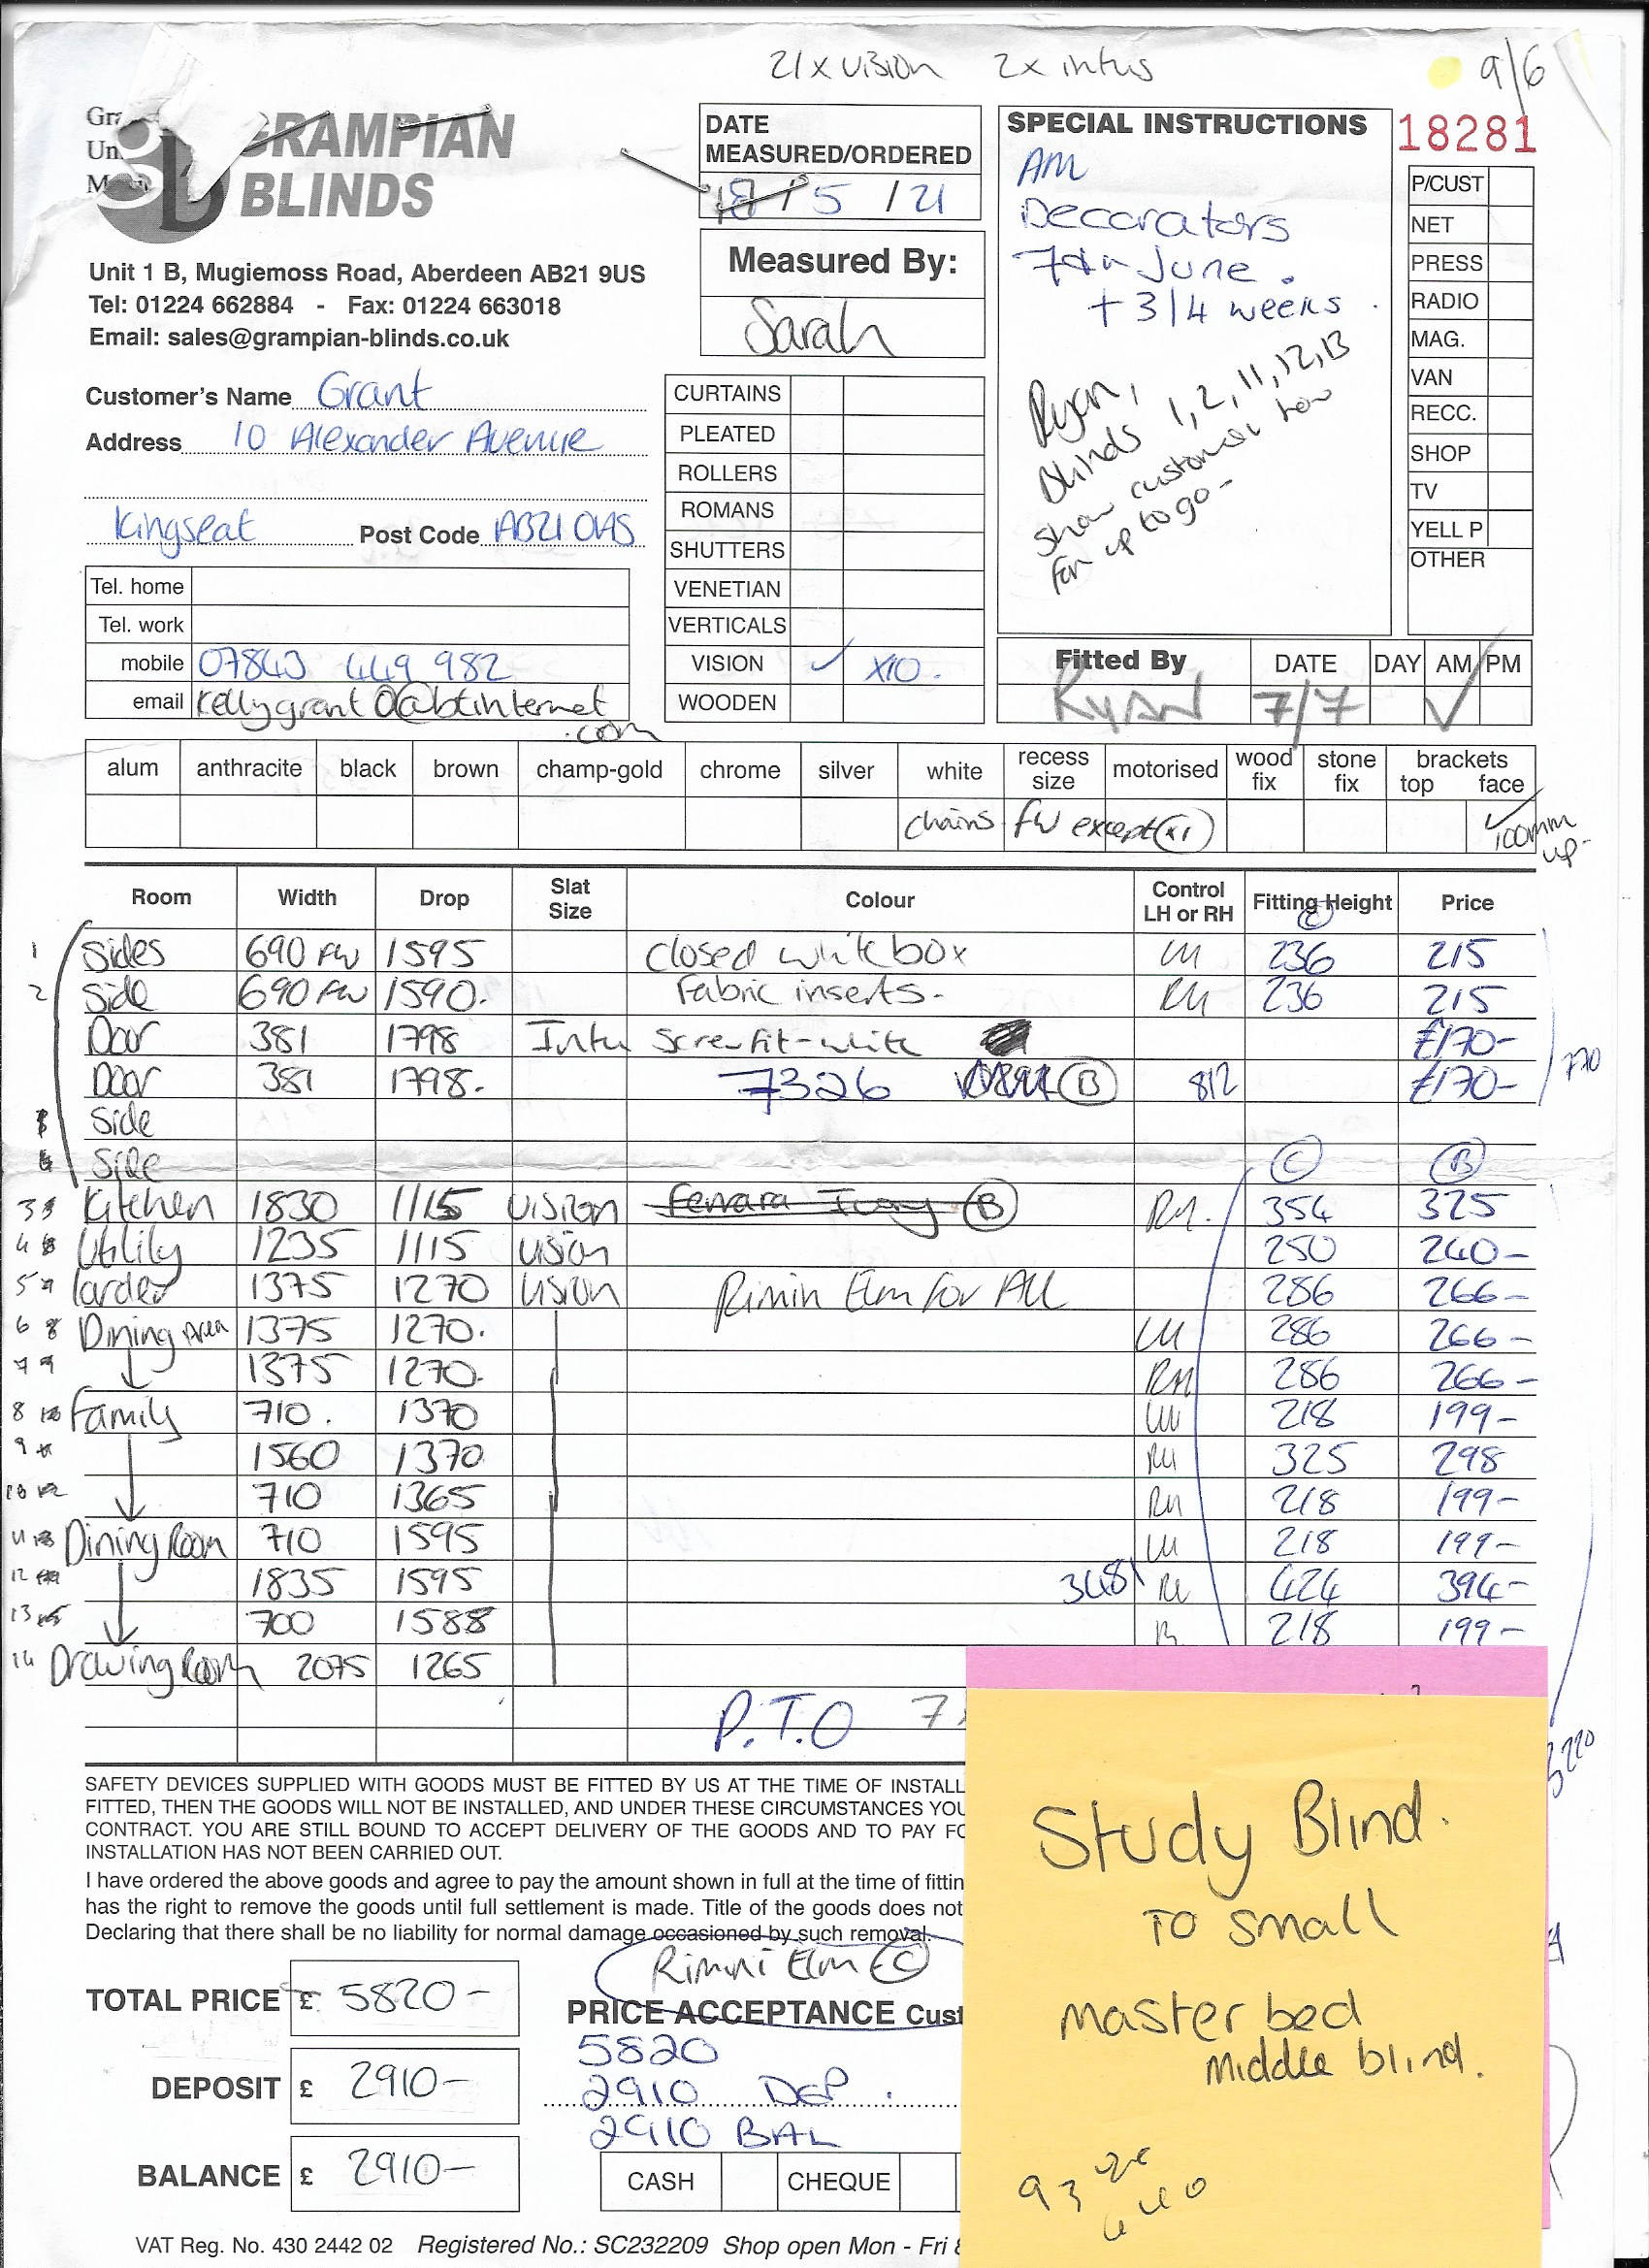 21 x vision 2x intus
9/6
GRAMPIAN
BLINDS
Unit 1 B, Mugiemoss Road, Aberdeen AB21 9US
Tel: 01224 662884 - Fax: 01224 663018
Email: sales@grampian-blinds.co.uk
Customer's Name Grant
Address 10 Alexander Avenue
Kingseat Post Code AB21 0AS
Tel. home
Tel. work
mobile 07843 449 982
email kellygrant0@btinternet
.com
DATE
MEASURED/ORDERED
18 / 5 / 21
Measured By:
Sarah
CURTAINS
PLEATED
ROLLERS
ROMANS
SHUTTERS
VENETIAN
VERTICALS
VISION ✓ x10.
WOODEN
SPECIAL INSTRUCTIONS
AM
Decorators
7th June.
+ 3/4 weeks.
Ryan,
Blinds 1, 2, 11, 12, 13
show customer how
far up to go-
18281
P/CUST
NET
PRESS
RADIO
MAG.
VAN
RECC.
SHOP
TV
YELL P
OTHER
Fitted By DATE DAY AM PM
RYAN 7/7 ✓
alum anthracite black brown champ-gold chrome silver white recess size motorised wood fix stone fix brackets top face
chains FW except (x1) ✓ 100mm
up-
Room Width Drop Slat Size Colour Control LH or RH Fitting Height Price
C
1 Sides 690 FW 1595 closed white box LH 236 215
2 Side 690 FW 1590. Fabric inserts- RH 236 215
Door 381 1798 Intu Screwfit-white £170-
Door 381 1798. 7326 B 812 £170-
770
Side
Side C B
3 Kitchen 1830 1115 vision Ferrara Ivory B RH. 354 325
4 Utility 1235 1115 vision 250 240-
5 Larder 1375 1270 vision Rimin Elm for All 286 266-
6 8 Dining Area 1375 1270. LH 286 266-
7 9 1375 1270. RH 286 266-
8 10 Family 710. 1370 LH 218 199-
9 1560 1370 RH 325 298
10 12 710 1365 RH 218 199-
11 13 Dining Room 710 1595 LH 218 199-
12 1835 1595 3481 RH 424 394-
13 15 700 1588 R 218 199-
14 Drawing Room 2075 1265
P.T.O 7
SAFETY DEVICES SUPPLIED WITH GOODS MUST BE FITTED BY US AT THE TIME OF INSTALL
FITTED, THEN THE GOODS WILL NOT BE INSTALLED, AND UNDER THESE CIRCUMSTANCES YOU
CONTRACT. YOU ARE STILL BOUND TO ACCEPT DELIVERY OF THE GOODS AND TO PAY FO
INSTALLATION HAS NOT BEEN CARRIED OUT.
I have ordered the above goods and agree to pay the amount shown in full at the time of fittin
has the right to remove the goods until full settlement is made. Title of the goods does not
Declaring that there shall be no liability for normal damage occasioned by such removal.
Rimini Elm C
TOTAL PRICE £ 5820-
PRICE ACCEPTANCE Cust
5820
DEPOSIT £ 2910-
2910 DEP.
2910 BAL
BALANCE £ 2910-
CASH CHEQUE
VAT Reg. No. 430 2442 02 Registered No.: SC232209 Shop open Mon - Fri 8
Study Blind.
TO small
Master bed
Middle blind.